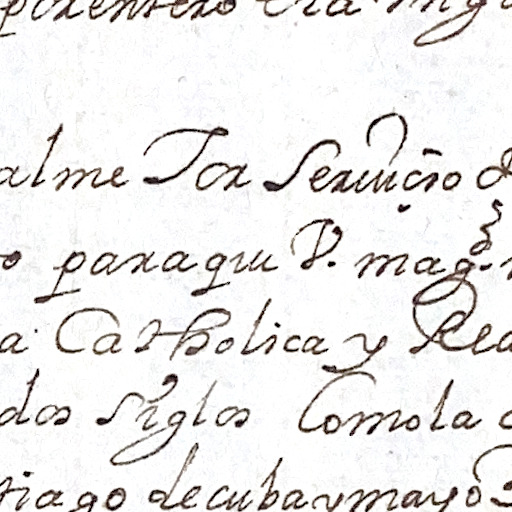 alme Por Seruicio d
o paraque V. mag.d
a Catholica y Rea
dos Siglos Comola
tiago de cuba y mayo 2